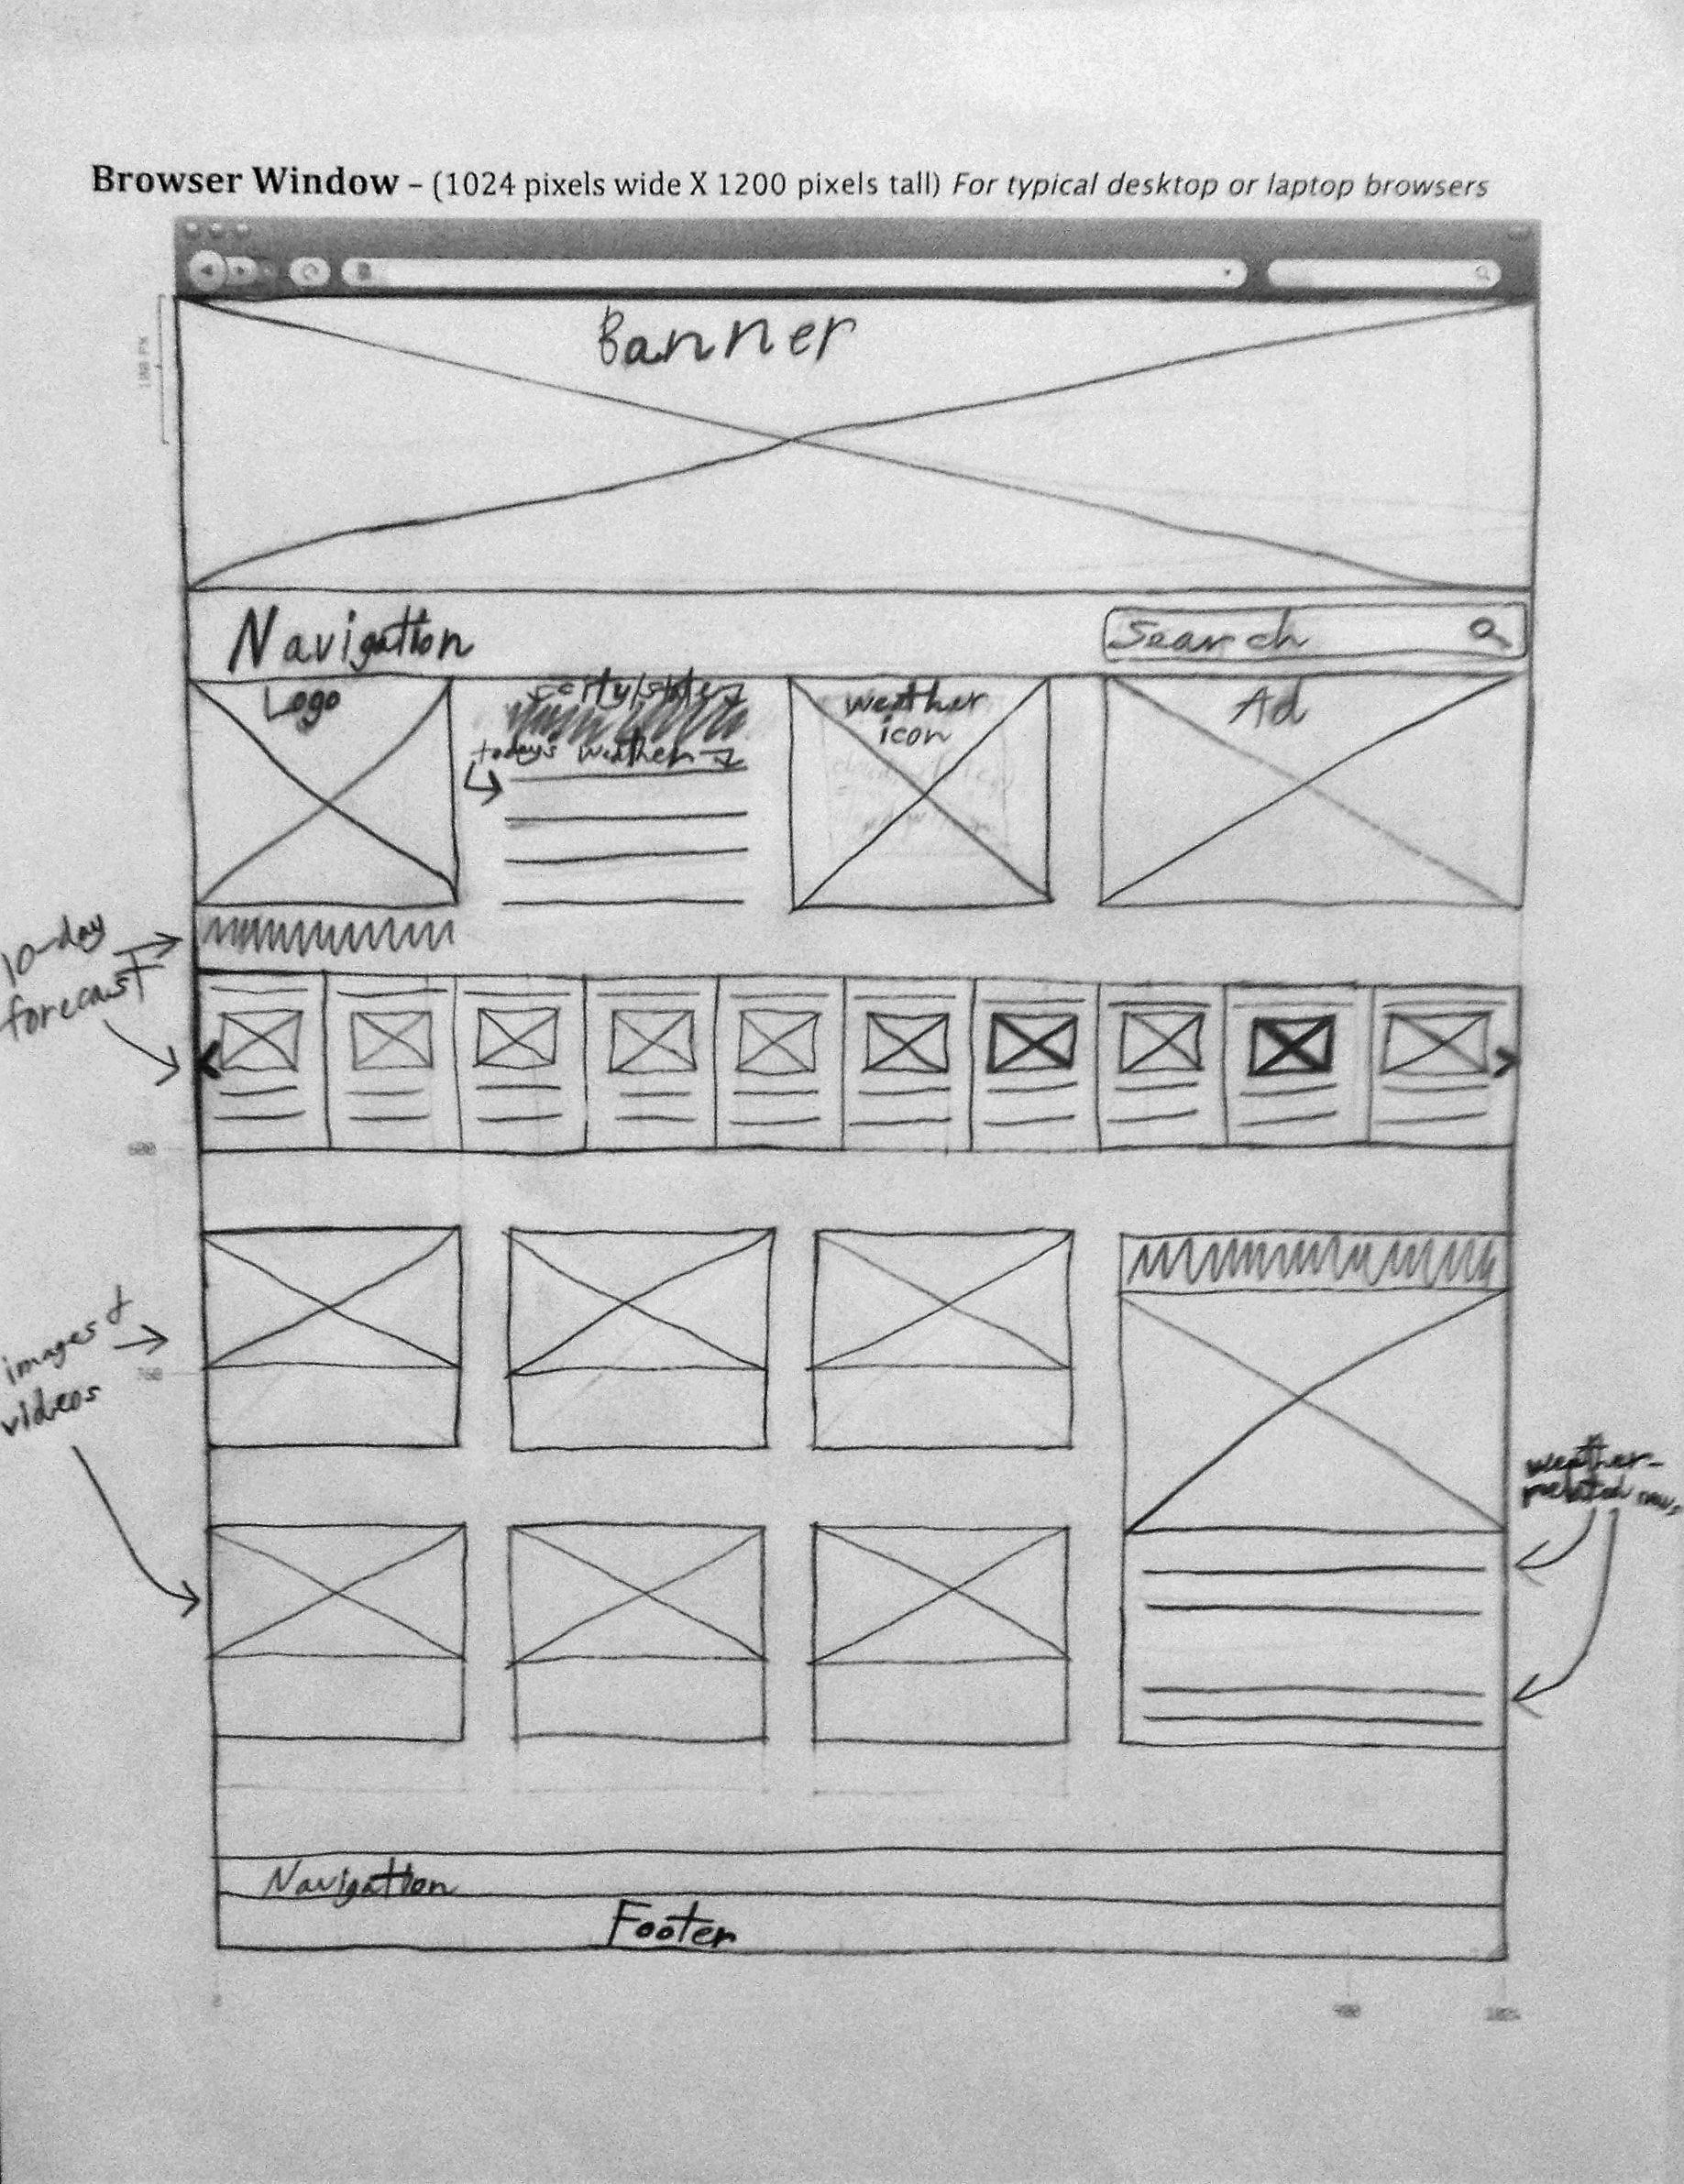 Browser Window – (1024 pixels wide X 1200 pixels tall) For typical desktop or laptop browsers
Banner
100 PX
Navigation
Search
Logo
city/state
today's weather
weather
icon
Ad
10-day
forecast
600
images &
videos
760
weather-
related
Navigation
Footer
0
900